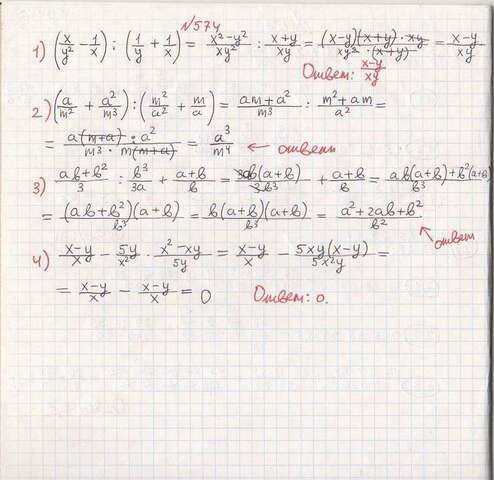 №574
1) (x/y² - 1/x) : (1/y + 1/x) = x²-y²/xy² : x+y/xy = (x-y)(x+y)·xy/xy²·(x+y) = x-y/xy
Ответ: x-y/xy
2) (a/m² + a²/m³) : (m²/a² + m/a) = am+a²/m³ : m²+am/a² =
= a(m+a)·a²/m³·m(m+a) = a³/m⁴ ← ответ
3) ab+b²/3 : b³/3a + a+b/b = 3ab(a+b)/3b³ + a+b/b = ab(a+b)+b²(a+b)/b³
= (ab+b²)(a+b)/b³ = b(a+b)(a+b)/b³ = a²+2ab+b²/b² ← ответ
4) x-y/x - 5y/x² · x²-xy/5y = x-y/x - 5xy(x-y)/5x²y =
= x-y/x - x-y/x = 0 Ответ: 0.